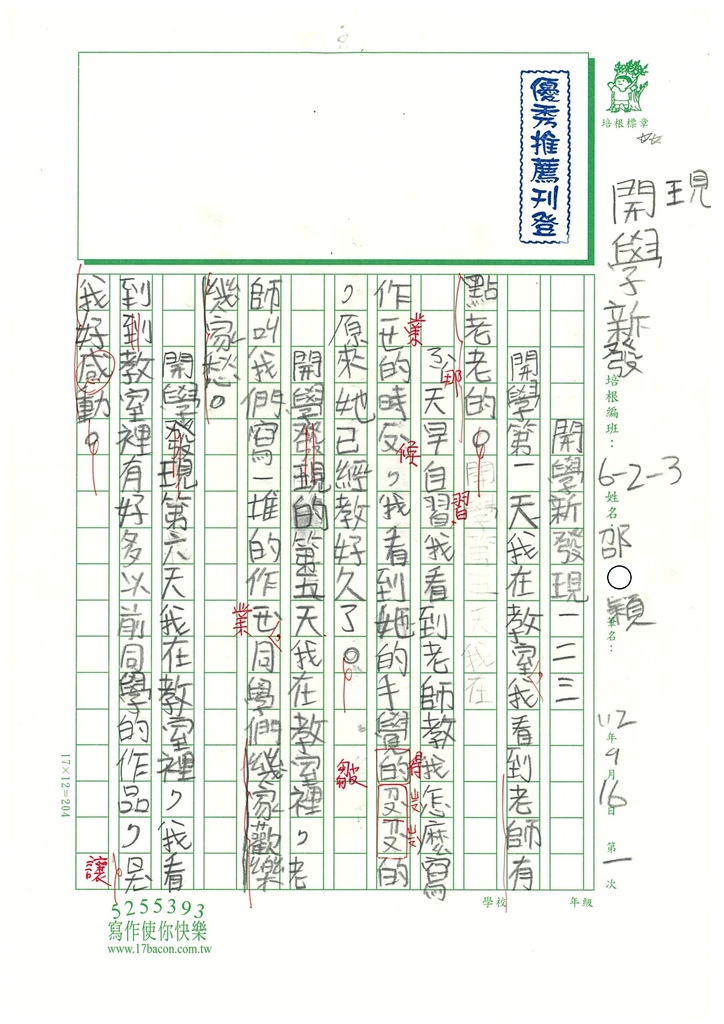 優秀推薦刊登
培根標章
開學新發現
培根編班：6-2-3
姓名：邵○穎
112年9月16日 第一次
開學新發現一二三
開學第一天我在教室我看到老師有
點老老的。
天早自習我看到老師教我怎麼寫
作世的時，我看到她的手覺的的
，原來她已經教好久了。
開學發現的第五天我在教室裡，老
師叫我們寫一堆的作世同學們幾家歡樂
幾家愁。
開學發現第六天我在教室裡，我看
到到教室裡有好多以前同學的作品，是
我好感動。
那
習
業
候
得
ㄓ
ㄓ
皺
業
讓
17×12=204
學校
年級
5255393
寫作使你快樂
www.17bacon.com.tw